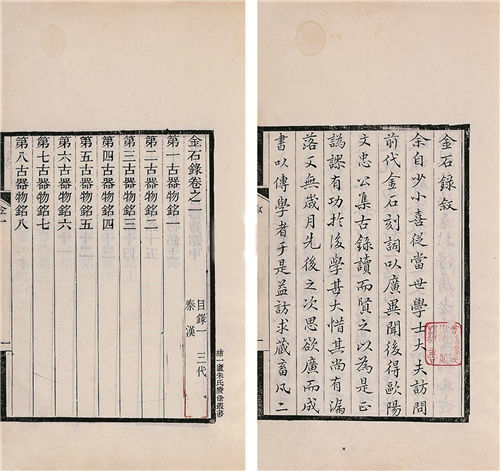 金石錄敘
余自少小喜從當世學士大夫訪問
前代金石刻詞以廣異聞後得歐陽
文忠公集古錄讀而賢之以為是正
譌謬有功於後學甚大惜其尚有漏
落又無歲月先後之次思欲廣而成
書以傳學者于是益訪求藏畜凡二
敘
結一廬朱氏賸餘叢書
金石錄卷之一
目錄一 三代
秦漢
第一古器物銘一
第二古器物銘二
第三古器物銘三
第四古器物銘四
第五古器物銘五
第六古器物銘六
第七古器物銘七
第八古器物銘八
金一